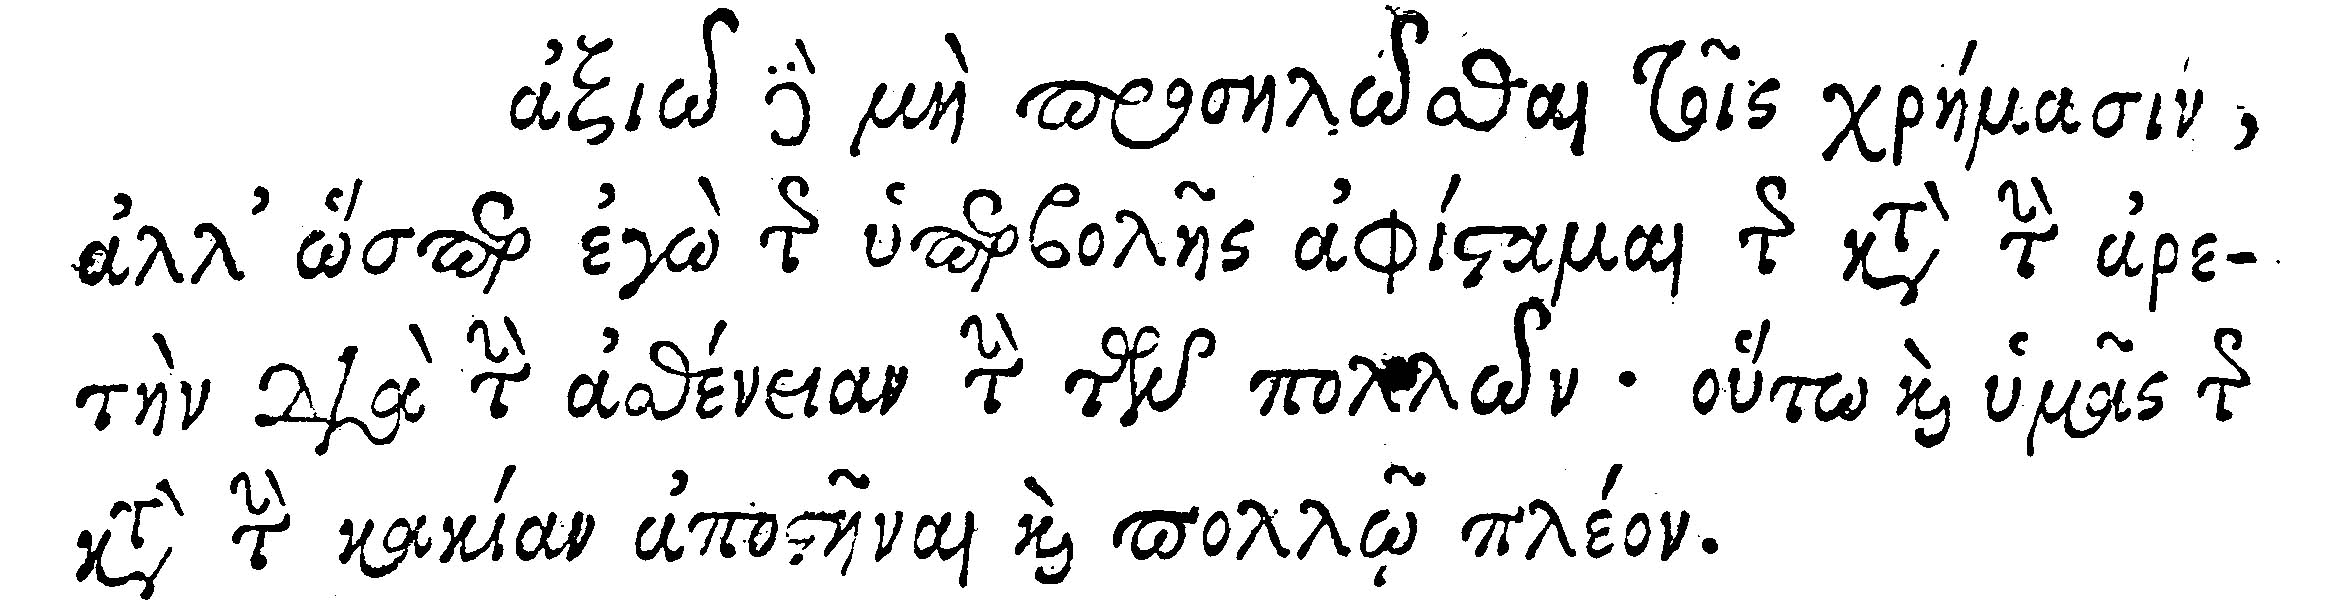 ἀξιῶ δὲ μὴ προσηλῶσθαι τοῖς χρήμασιν,
ἀλλ' ὥσπερ ἐγὼ τῆς ὑπερβολῆς ἀφίσταμαι τῆς κατὰ τὴν ἀρε-
τὴν διὰ τὴν ἀσθένειαν τὴν τῶν πολλῶν· οὕτω καὶ ὑμᾶς τῆς
κατὰ τὴν κακίαν ἀποστῆναι καὶ πολλῷ πλέον.